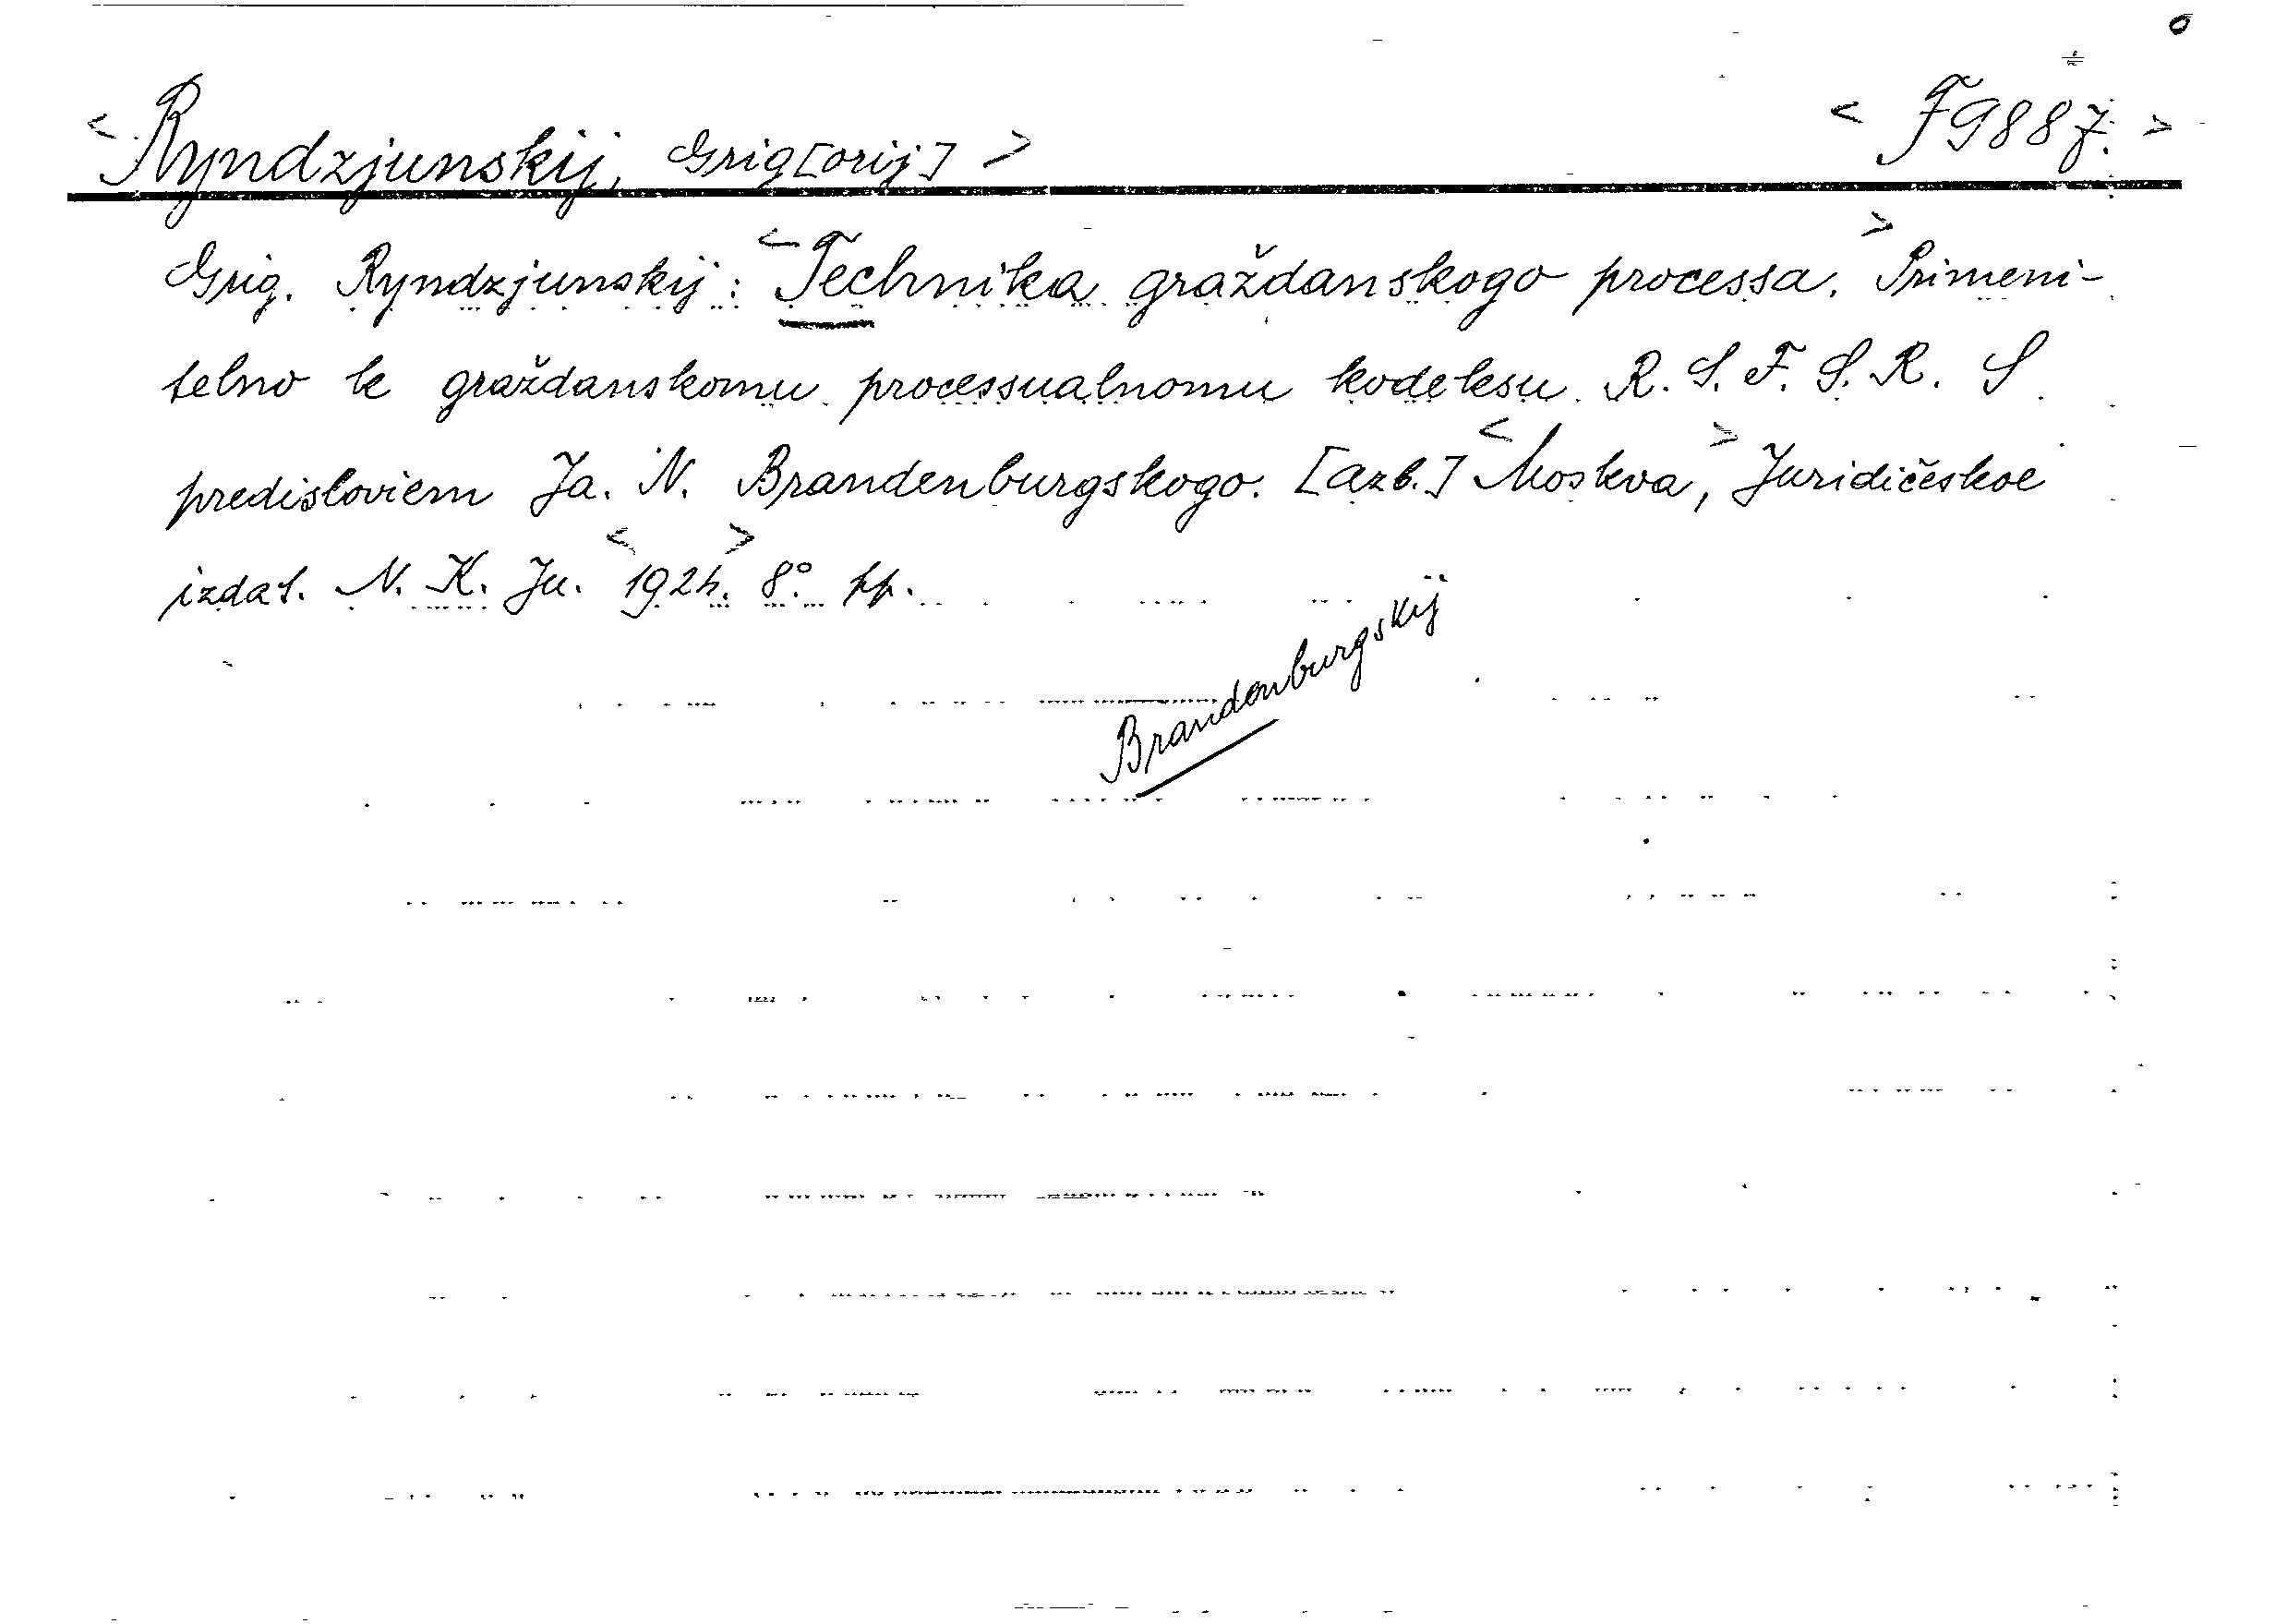 < Ryndzjunskij, Grig[orij] > < F 9887. >
Grig. Ryndzjunskij: < Technika graždanskogo processa. > Primeni-
telno k graždanskomu processualnomu kodeksu R. S. F. S. R. S
predisloviem Ja. N. Brandenburgskogo. [azb.] < Moskva, > Juridičeskoe
izdat. N. K. Ju. < 1924. > 8° pp.
Brandenburgskij